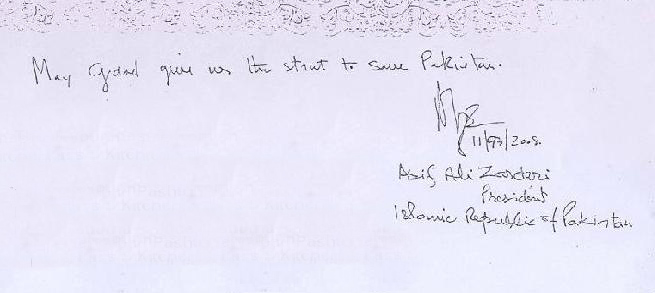 May Goad give us the strnt to save Pakistan.
2008.
Asif Ali Zardari
President
Islamic Republic of Pakistan.